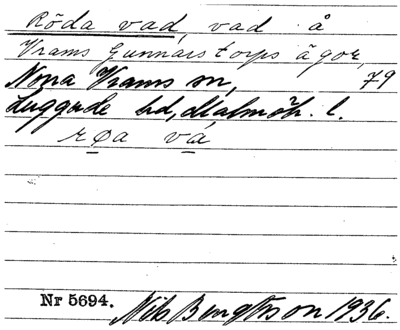 Röda vad, vad å
Vrams Gunnarstorps ägor,
Norra Vrams sn, 79
Luggude hd, Malmöh. l.
røa vá
Nr 5694. Nils Bengtsson 1936.